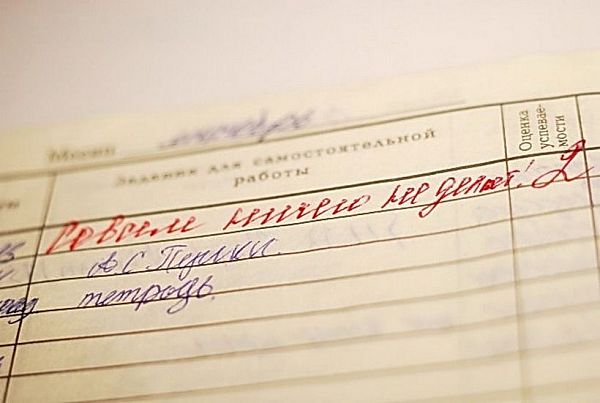 Месяц
Задания для самостоятельной
работы
Оценка
успевае-
мости
Совсем ничего не делает! 2
А.С. Пушкин.
тетрадь.